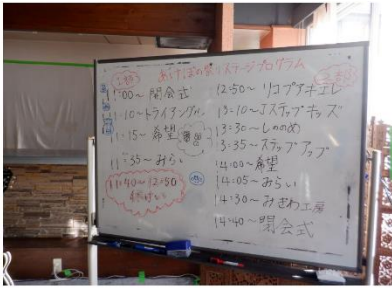 あけぼの祭りステージプログラム
11:00～開会式
11:10～トライアングル
11:15～希望
11:35～みらい
11:40～12:50
休けい
12:50～リコプアキエレ
13:10～Jステップキッズ
13:30～しののめ
13:35～ステップアップ
14:00～希望
14:05～みらい
14:30～みさわ工房
14:40～閉会式